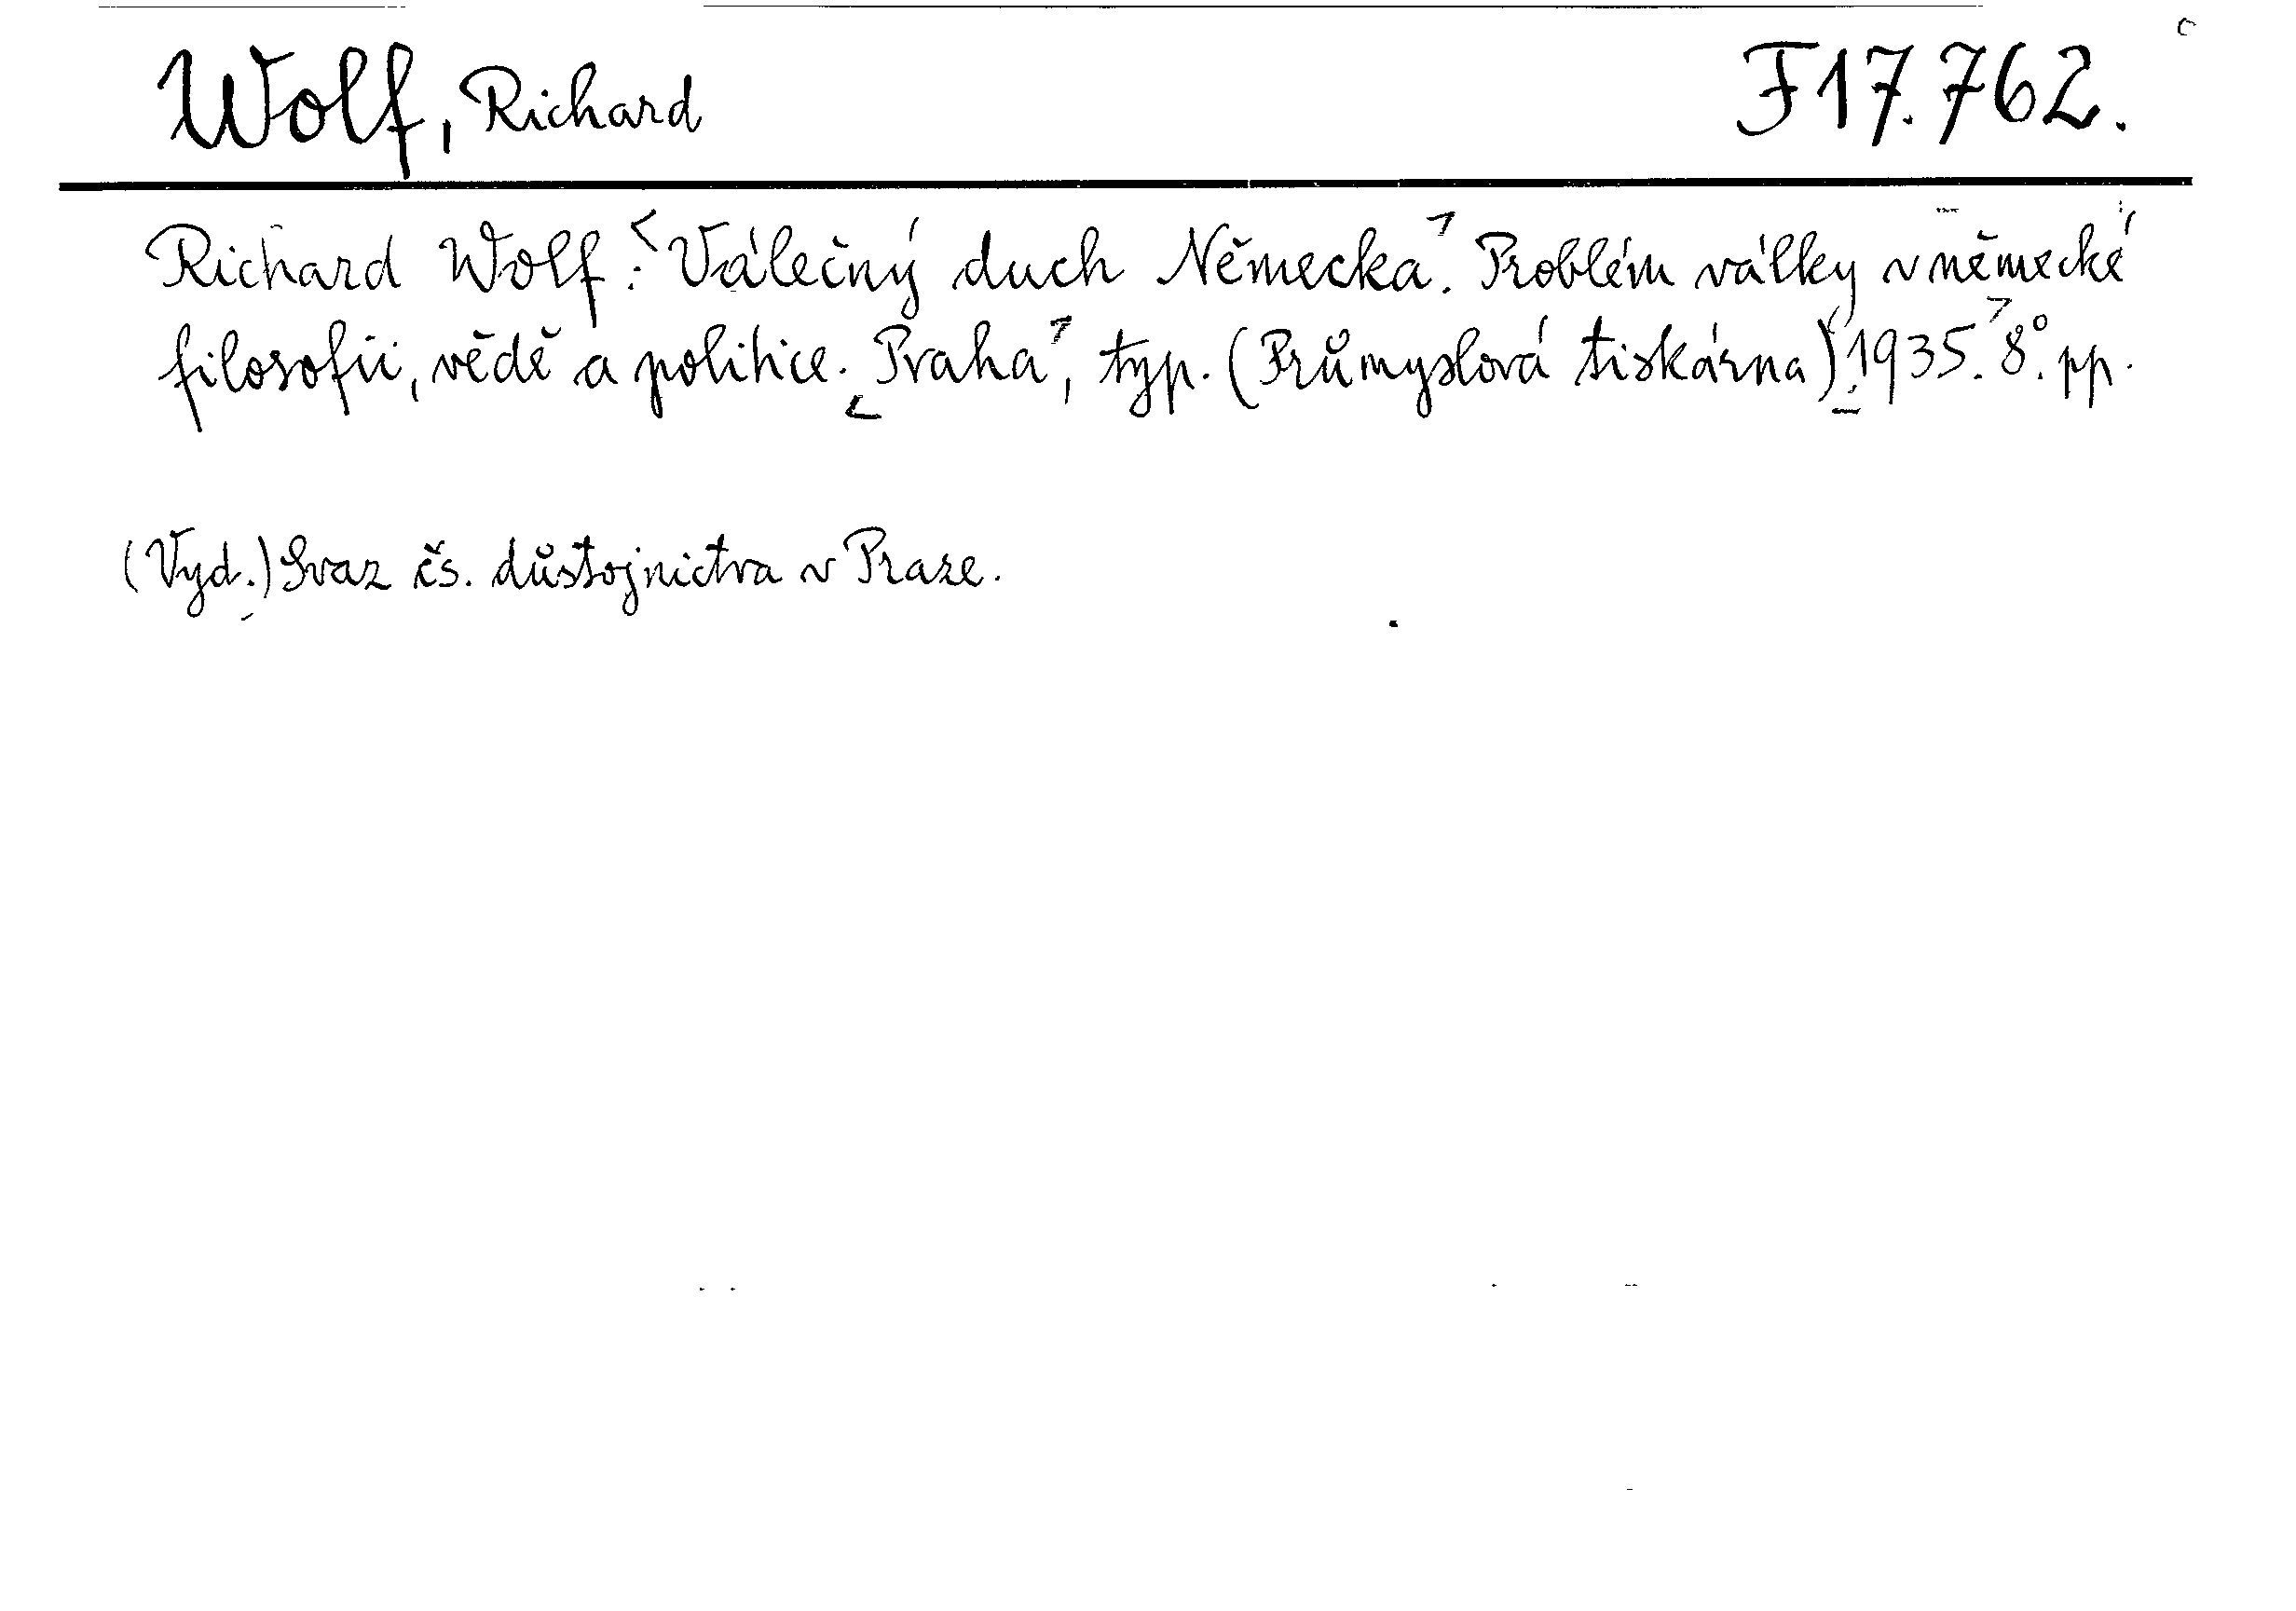 Wolf, Richard F 17.762.
Richard Wolf: Válečný duch Německa. Problém války v německé
filosofii, vědě a politice. Praha, typ. (Průmyslová tiskárna) 1935. 8°. pp.
(Vyd.) Svaz čs. důstojnictva v Praze.